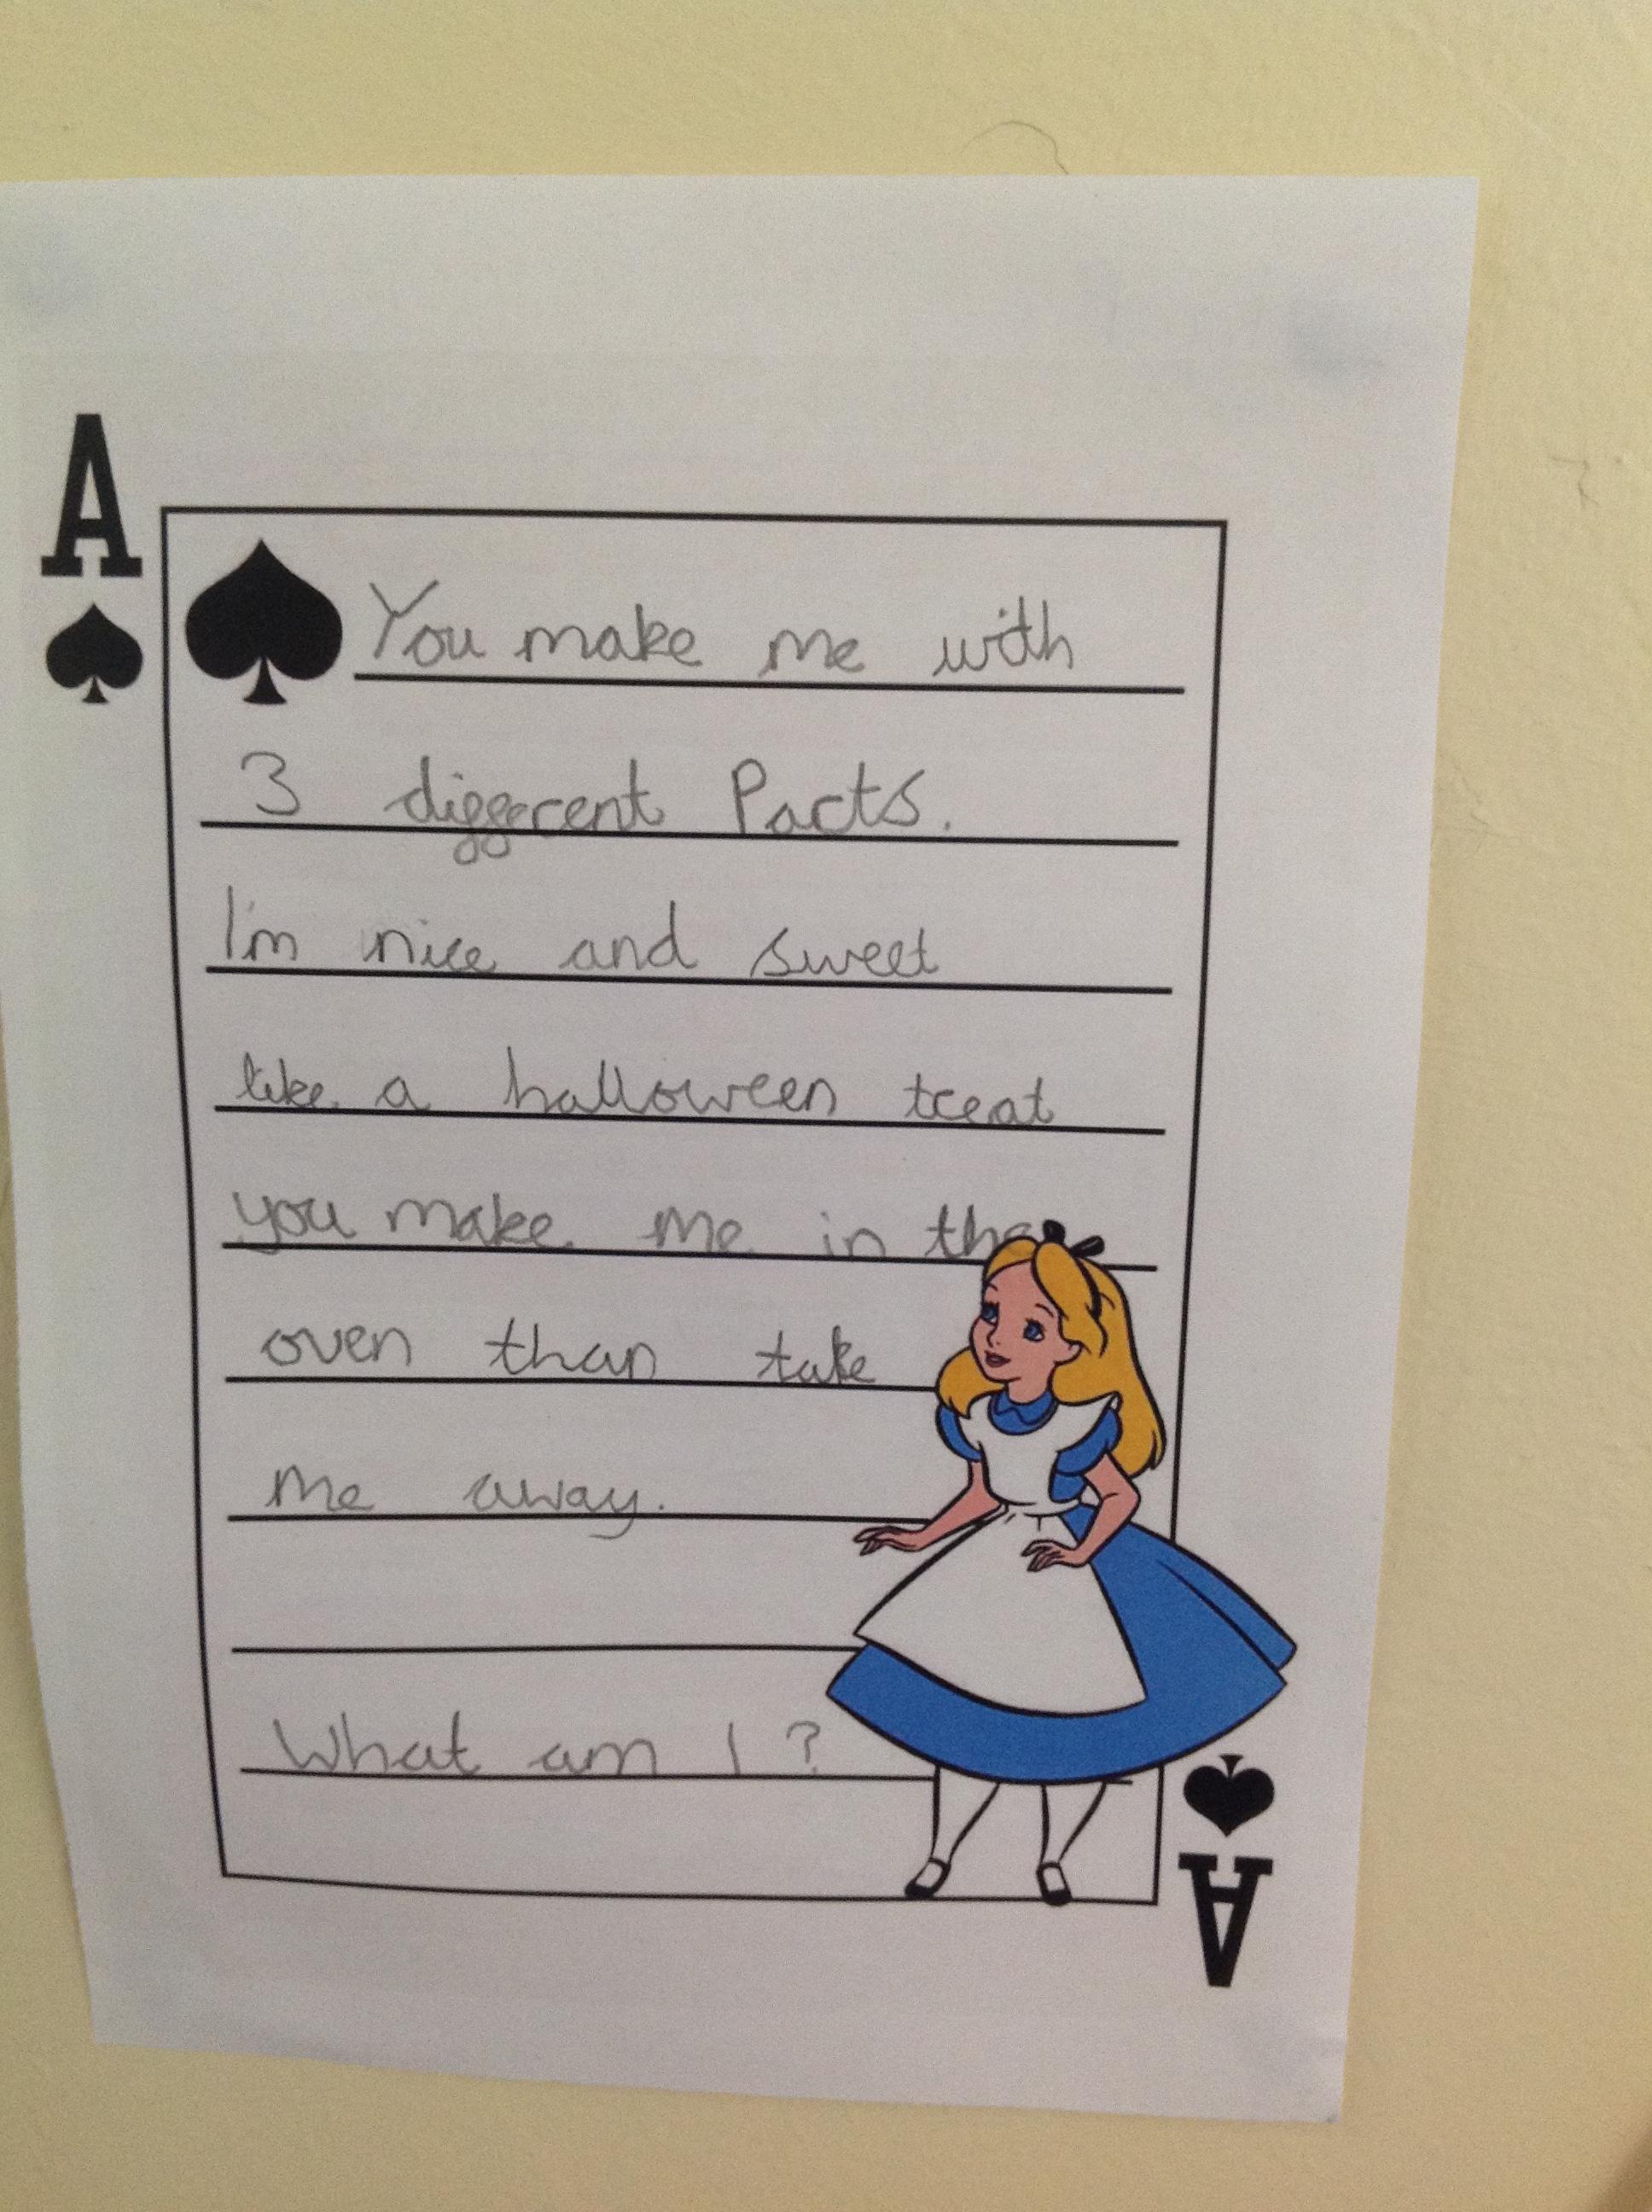 A
You make me with
3 different Parts.
I'm nice and sweet
like a halloween treat
you make me in the
oven than take
me away.
What am I?
A